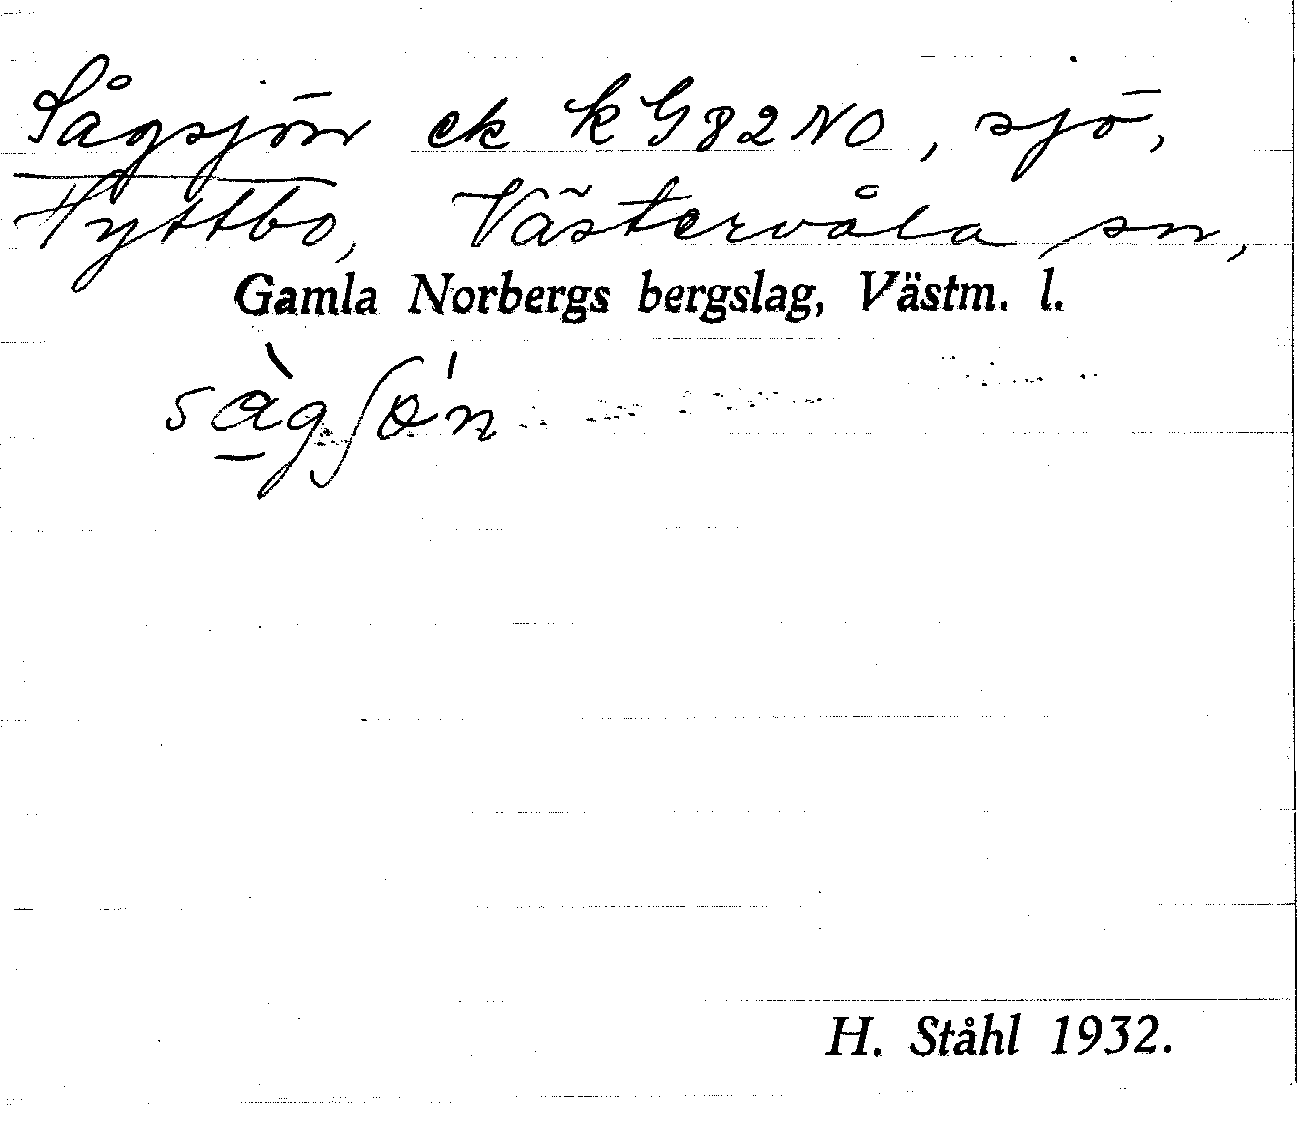 Sågsjön ek k G82NO, sjö,
Hyttbo, Västervåla sn,
Gamla Norbergs bergslag, Västm. l.
H. Ståhl 1932.